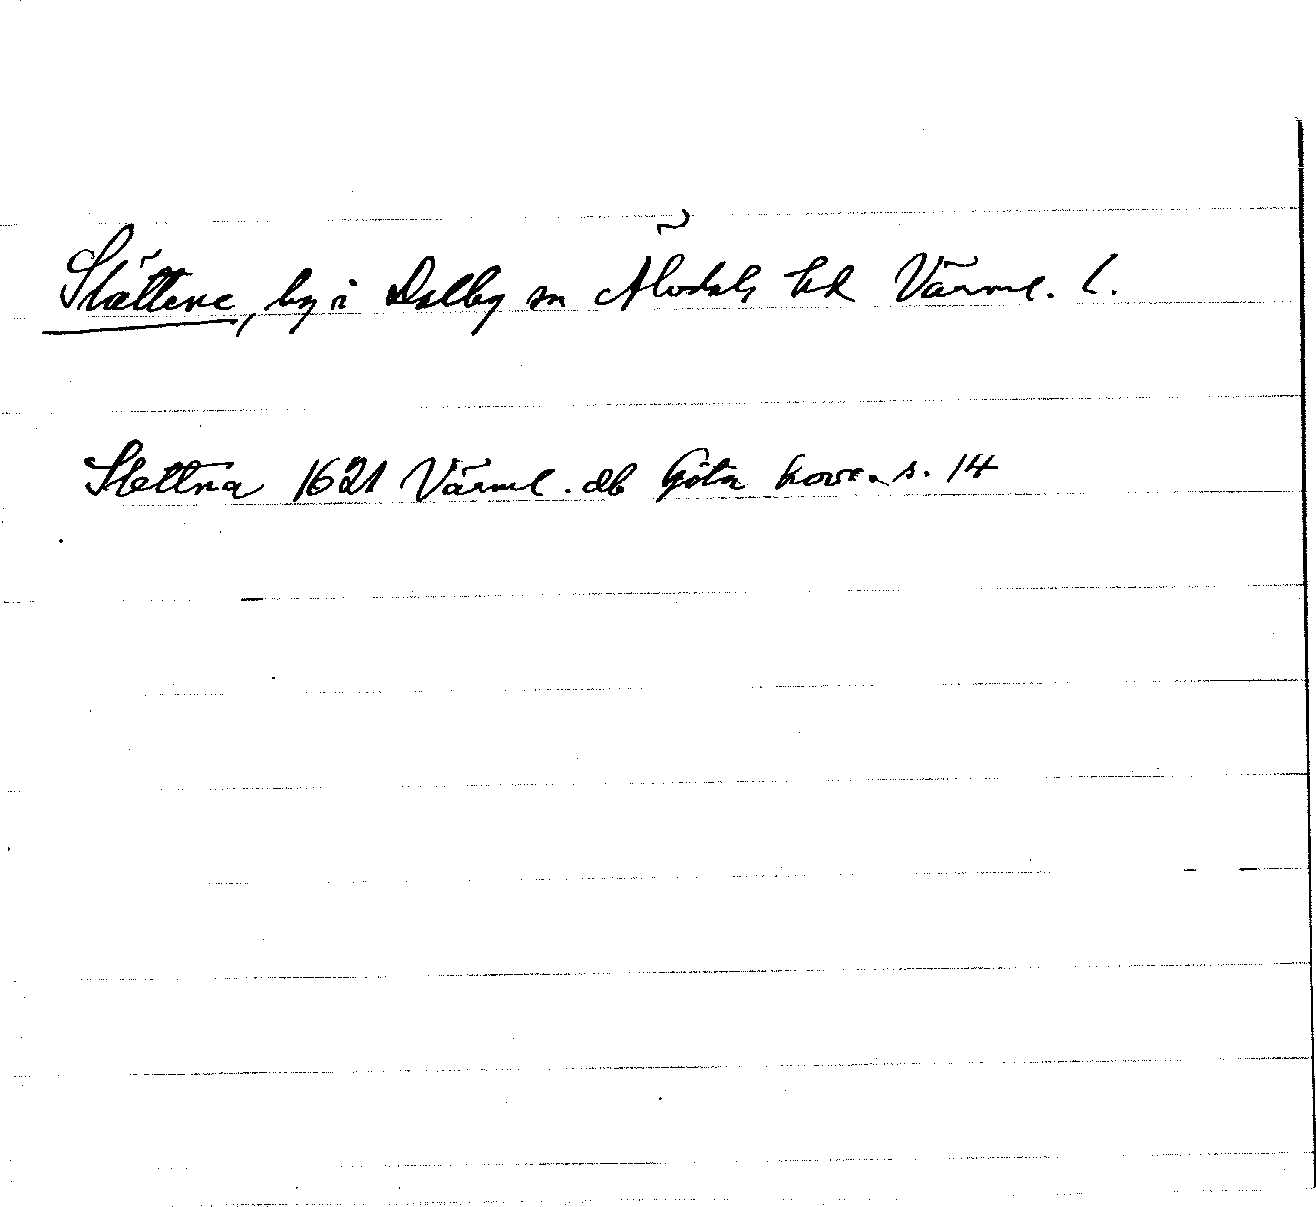 Slättene, by i Dalby sn Älvdals hd Värml. l.
Slettna 1621 Värml. db Göta hovr. s. 14